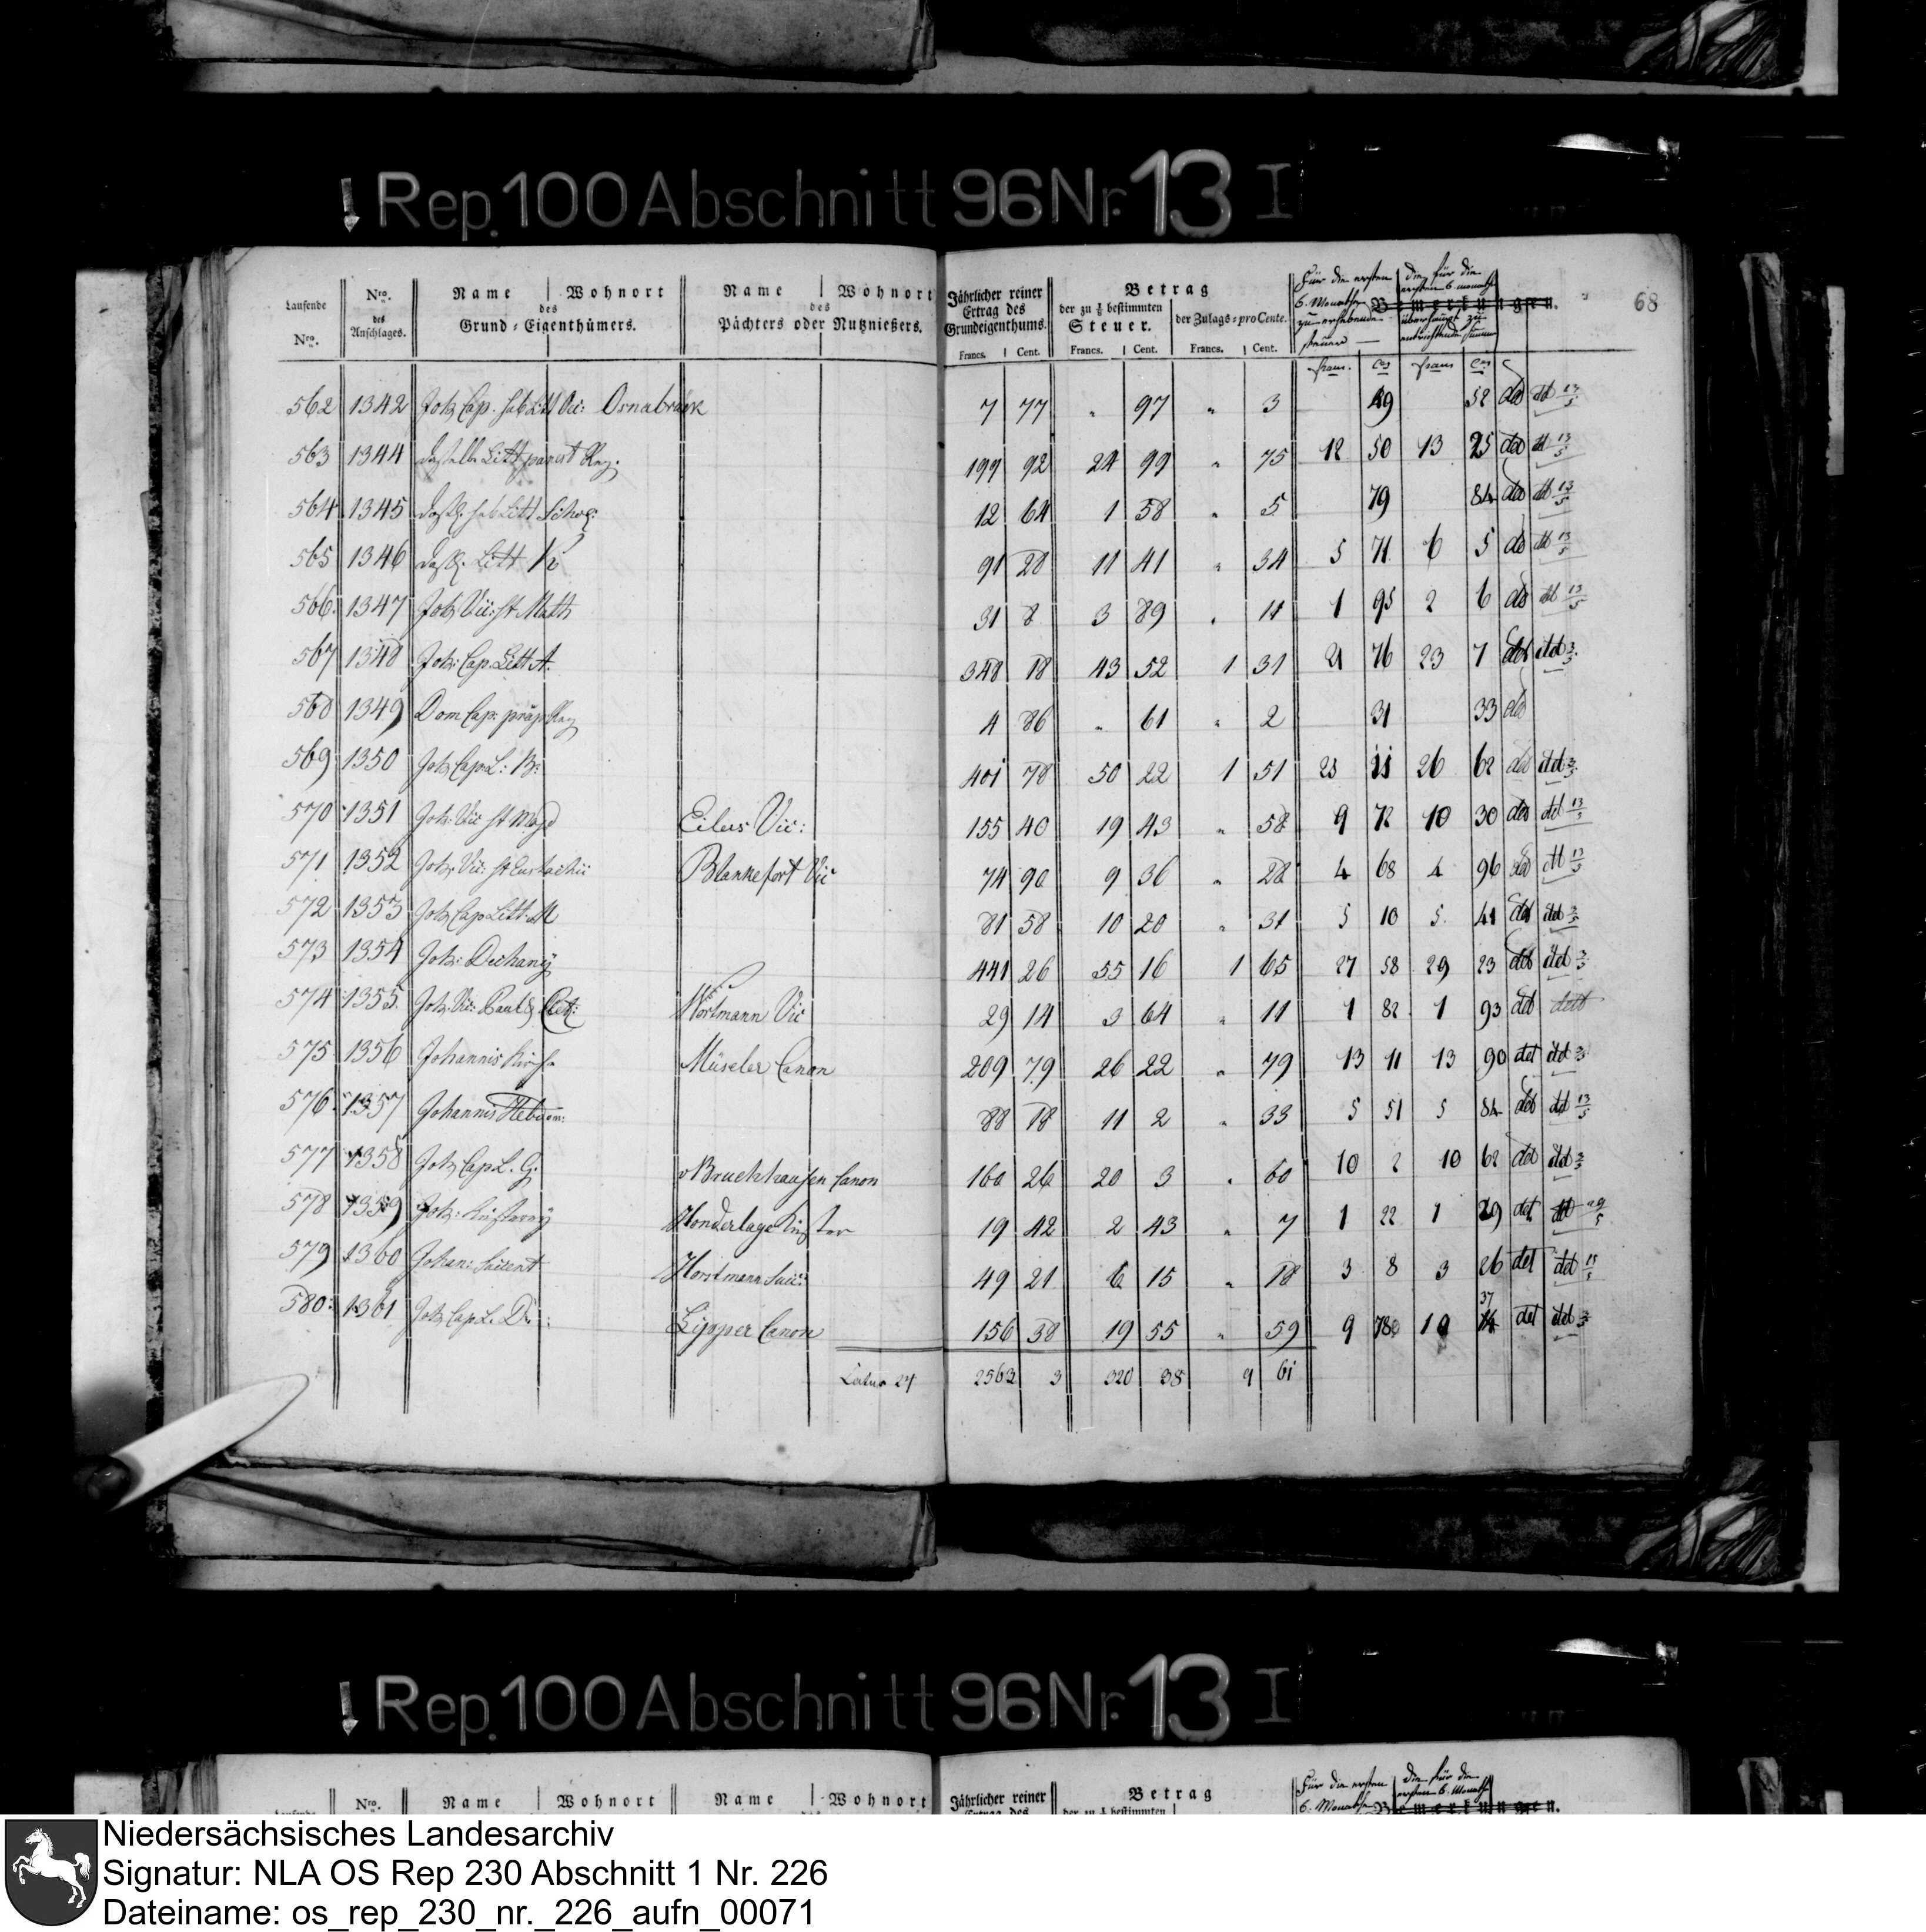 Rep. 100 Abschnitt 96 Nr. 13 I
68
Laufende Nro.
Nro. des Anschlages.
Name | Wohnort
des
Grund-Eigenthümers.
Name | Wohnort
des
Pächters oder Nutznießers.
Jährlicher reiner Ertrag des Grundeigenthums.
Francs. | Cent.
Betrag
der zu ⅛ bestimmten Steuer.
Francs. | Cent.
der Zulags-pro Cente.
Francs. | Cent.
Für die ersten 6. Monathe zu erhebende Steuer
die für die ersten 6 Monathe überhaupt zu entrichtende Summe
Bemerkungen.
562 1342 Joh. Cap. Vic: Osnabrück 7 77 " 97 " 3 49 52
563 1344 Litt 199 92 24 99 " 75 12 50 13 25
564 1345 Litt 12 64 1 58 " 5 79 84
565 1346 Litt 91 28 11 41 " 34 5 71 6 5
566 1347 Joh. Vic: St Math 31 8 3 89 " 11 1 95 2 6
567 1348 Joh: Cap. Litt A. 348 18 43 52 1 31 21 76 23 7
568 1349 Dom Cap: 4 86 " 61 " 2 31 33
569 1350 Joh. Cap. L: B: 401 78 50 22 1 51 25 11 26 62
570 1351 Joh: Vic St Magd Eilers Vic: 155 40 19 43 " 58 9 72 10 30
571 1352 Joh. Vic: St Eustachii Blankefort Vic 74 90 9 36 " 28 4 68 4 96
572 1353 Joh Cap Litt. M 81 58 10 20 " 31 5 10 5 41
573 1354 Joh: Dechaney 441 26 55 16 1 65 27 58 29 23
574 1355 Joh. Vic: Pauli Wortmann Vic 29 14 3 64 " 11 1 82 1 93
575 1356 Johannis Kirche Müseler Canon 209 79 26 22 " 79 13 11 13 90
576 1357 Johannis 88 18 11 2 " 33 5 51 5 84
577 1358 Joh. Cap L. G. v Bruchhausen Canon 160 26 20 3 " 60 10 2 10 62
578 1359 Joh: Küsterey Honderlage Küster 19 42 2 43 " 7 1 22 1 29
579 1360 Johan: Horstmann 49 21 6 15 " 18 3 8 3 26
580 1361 Joh. Cap. L. D: Lipper Canon 156 38 19 55 " 59 9 78 10 37
Latus 2563 3 320 38 9 61
Rep. 100 Abschnitt 96 Nr. 13 I
Nro.
Name | Wohnort
Name | Wohnort
Jährlicher reiner
Betrag
Für die ersten 6. Monathe
die für die ersten 6. Monathe
Bemerkungen.
Niedersächsisches Landesarchiv
Signatur: NLA OS Rep 230 Abschnitt 1 Nr. 226
Dateiname: os_rep_230_nr._226_aufn_00071